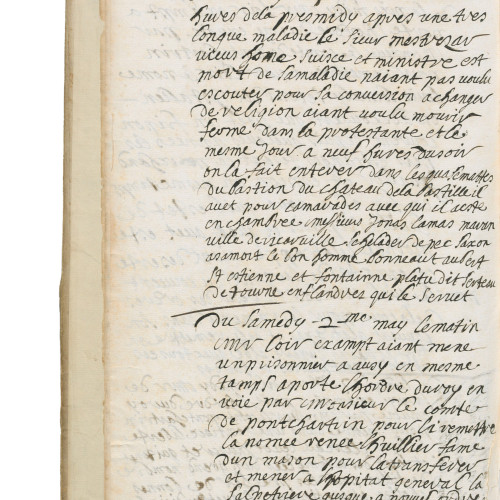 hures dela presmidy apres une tres
longue maladie le sieur mestrezar
vieus home suisce et ministre est
mort de sa maladie naiant pas voulu
escouter pour sa conversion a changer
de religion aiant voulu mourir
ferme dans la protestante et le
mesme jour a neuf hures du soir
on la fait enterer dans les
du bastion du chateau dela bastille il
avet pour camarades avec qui il a esté
en chambree messieurs Jonas lamas
ville de ricarville de pec saxon
asamort le bon homme bonneau aubert
st estienne et fontainne platu dit
de tourne en flandres qui le servet
Du Samedy 2me may le matin
mr loir exampt aiant mene
un prisonnier a ausy en mesme
tamps aporte lhordre du roy en
voie par monsieur le comte
de pontchartin pour luy remettre
la nomée renee lhuillier fame
dun mason pour la transferer
et mener a lhopital general la